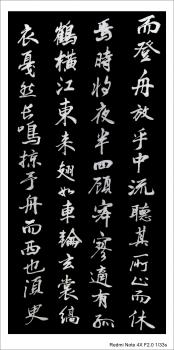 而登舟放乎中流聽其所止而休
焉時將夜半四顧寂寥適有孤
鶴橫江東來翅如車輪玄裳縞
衣戛然長鳴掠予舟而西也須臾
Redmi Note 4X F2.0 1/33s